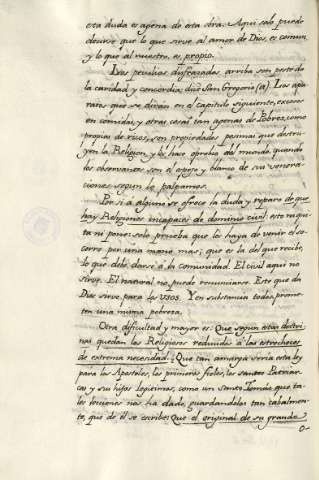 esta duda es agena de esta obra. Aqui solo puede
decirse que lo que sirve al amor de Dios, es comun
y lo que al nuestro, es propio.
Los peculios disfrazados arriba son peste de
la caridad y concordia; dijo San Gregorio (a). Los apa
ratos que se dirán en el capitulo siguiente, excesos
en comidas y otras cosas tan agenas de Pobres, como
propias de ricos, son propiedades pesimas que destru
yen la Religion, y la hace oprobio del mundo, quando
los observantes son el apoyo y blanco de sus venera
ciones segun lo palpamos.
Por si a alguno se ofrece la duda y reparo de que
hay Religiones incapaces de dominio civil: esto no qui
ta ni pone: solo prueba que les haya de venir el so
corro por una mano mas; que es la del que recibe
lo que debe darse a la comunidad. El civil aqui no
sirve. El natural no puede renunciarse. Este que da
Dios sirve para los usos. Y en substancia todos prome-
ten una misma pobreza.
Otra dificultad y mayor es: Que segun estas doctri
nas quedan los Religiosos reducidos à las estrecheces
de extrema necesidad. ¡Que tan amarga sería esta ley
para los Apostoles, los primeros fieles, los santos Patriar
cas y sus hijos legitimos, como un santo Tomás que ta
les lecciones nos ha dado, guardandolas tan cabalmen-
te, que de él se escribe: Que el original de su grande